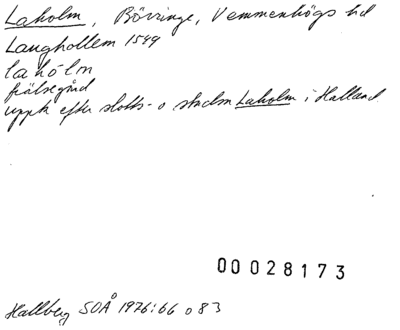 Laholm, Börringe, Vemmenhögs hd
Laughollem 1549
lahólm
frälsegård
uppk efter slotts- o staden Laholm i Halland
00028173
Hallberg SOÅ 1976:66 o 83